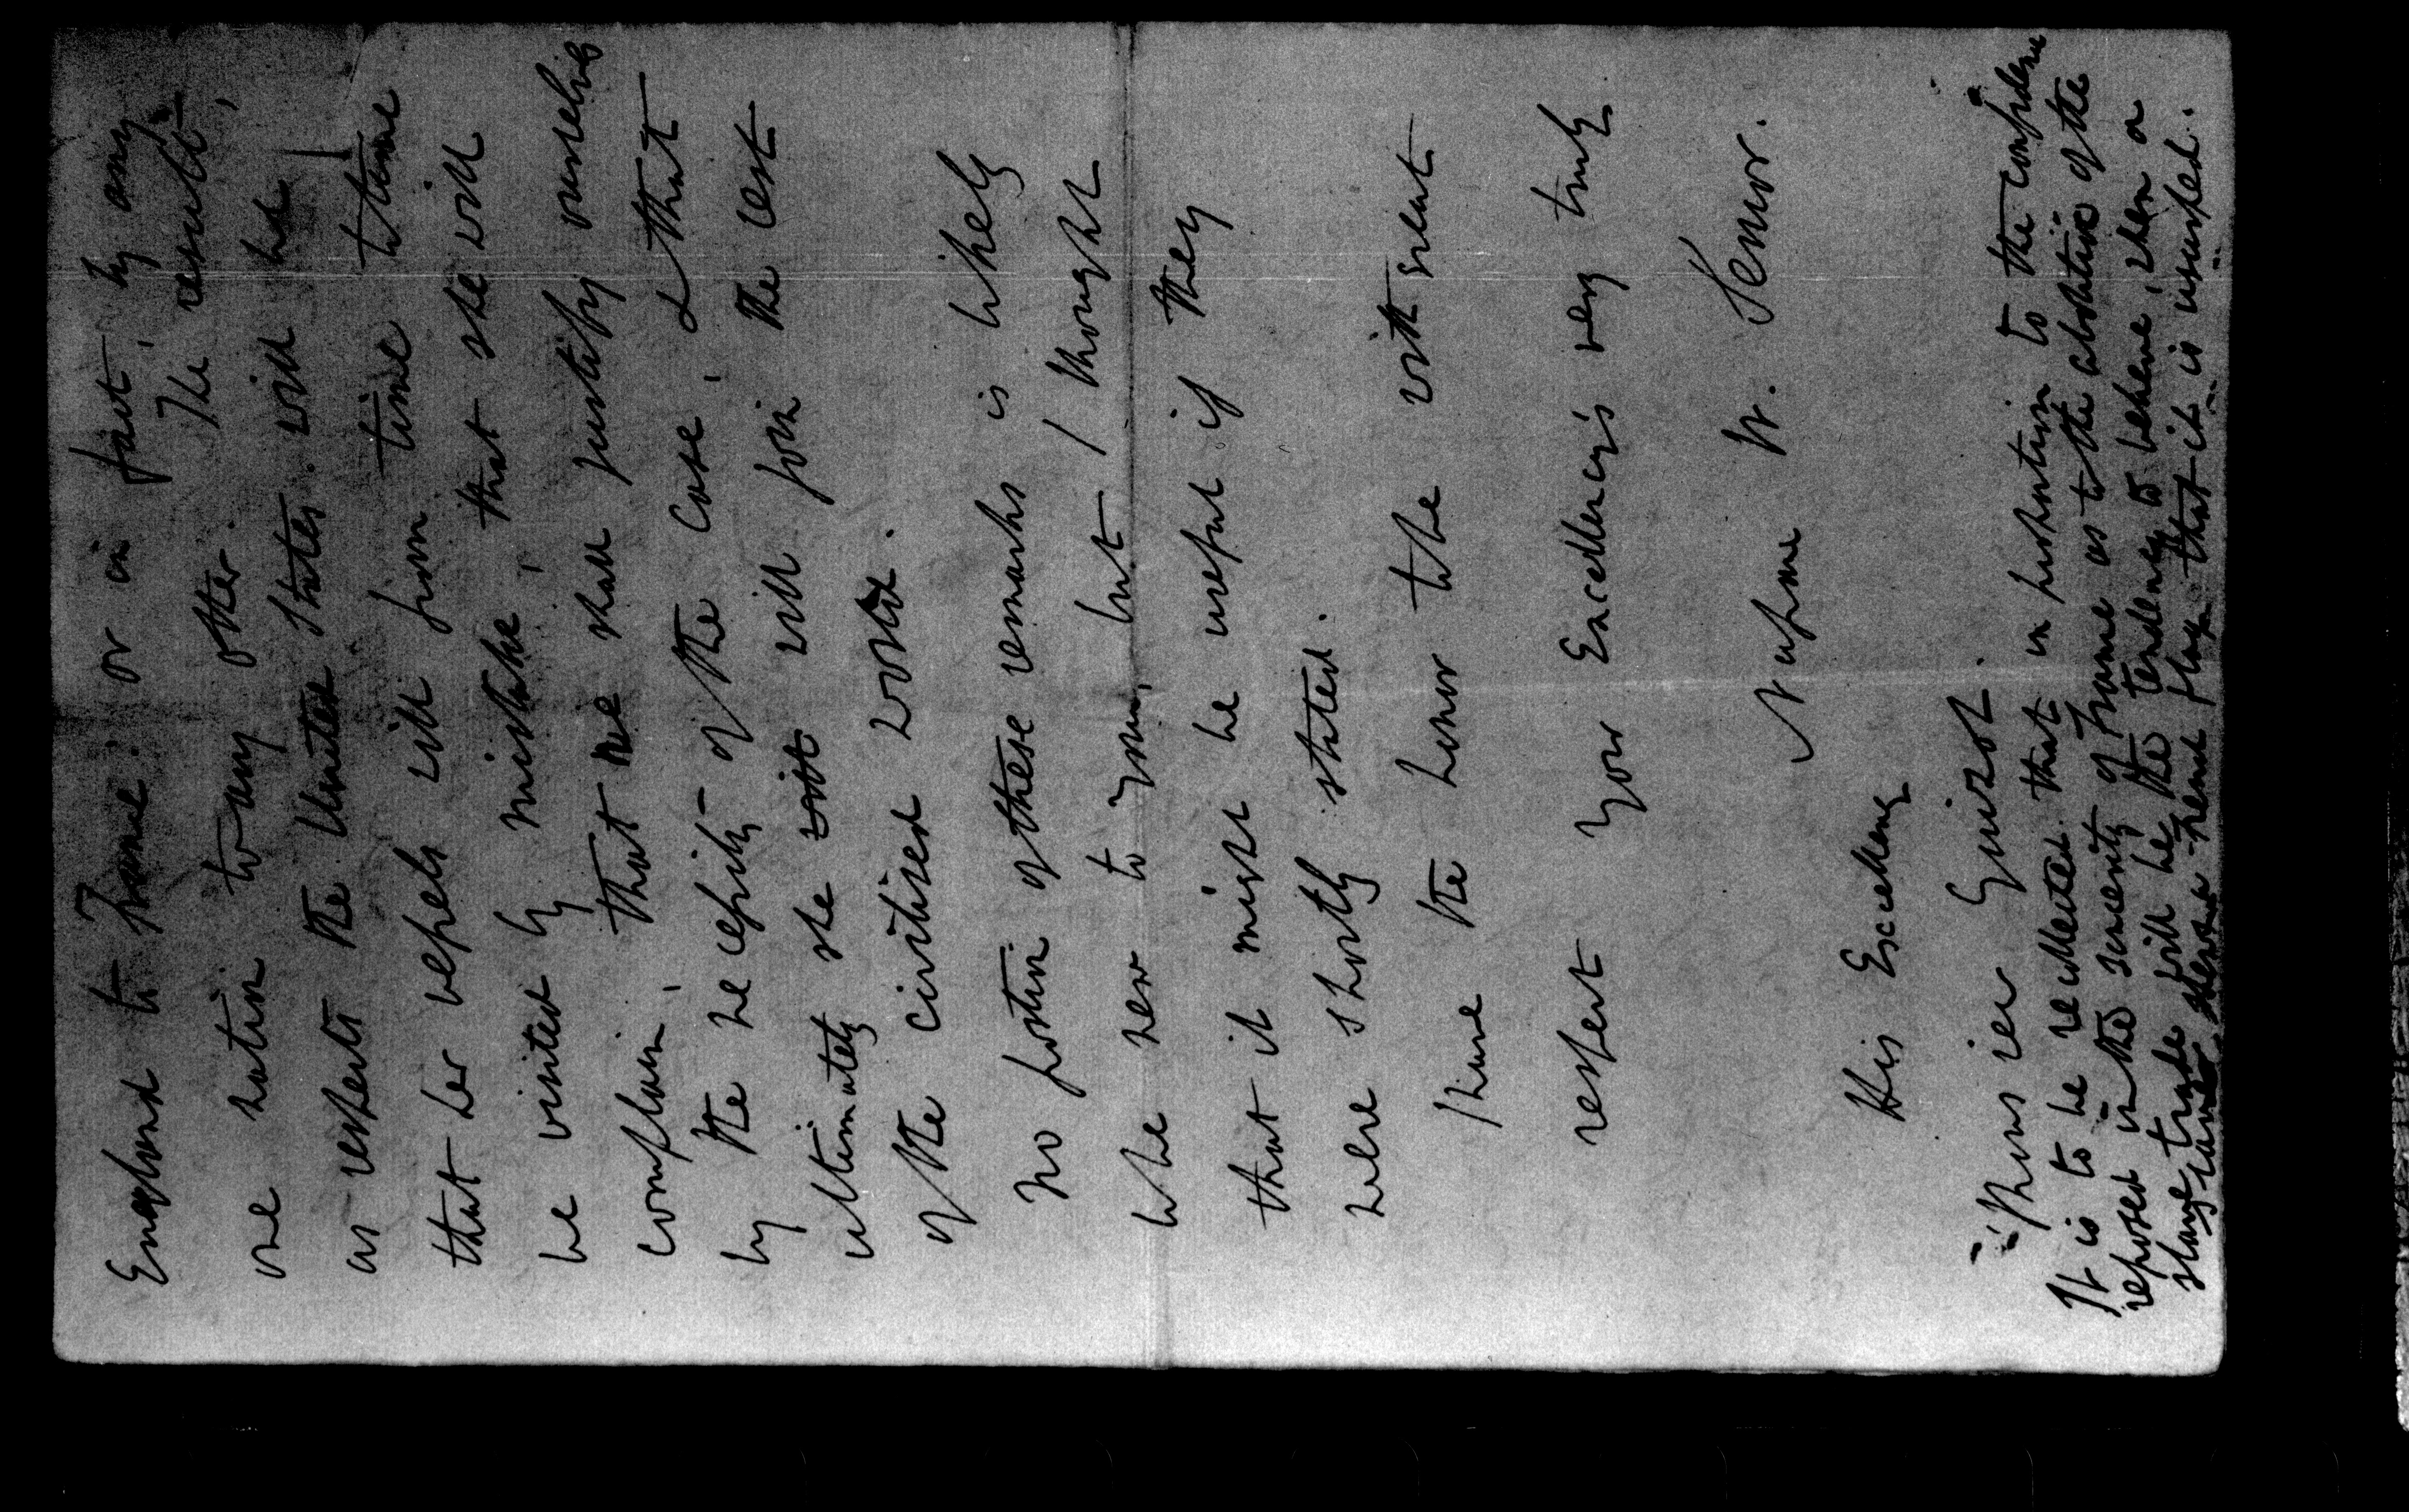 England to France: or in fact, by any
one nation to any other. The result,
as respects the United States will be,
that her vessels will from time to time
be visited by mistake, that she will
complain, that we shall justify ourselves
by the necessity of the case, & that
ultimately she will will join the rest
of the civilized world.
No portion of these remarks is likely
to be new to you, but I thought
that it might be useful if they
were shortly stated.
I have the honor to be with great
respect your Excellency's very truly
Nassau W. Senior.
His Excellency
Monsieur Guizot.
It is to be recollected that in proportion to the confidence
reposed in the sincerity of France as to the abolition of the
slave trade will be the tendency to believe, when a
slaver shews a French flag that it is usurped.